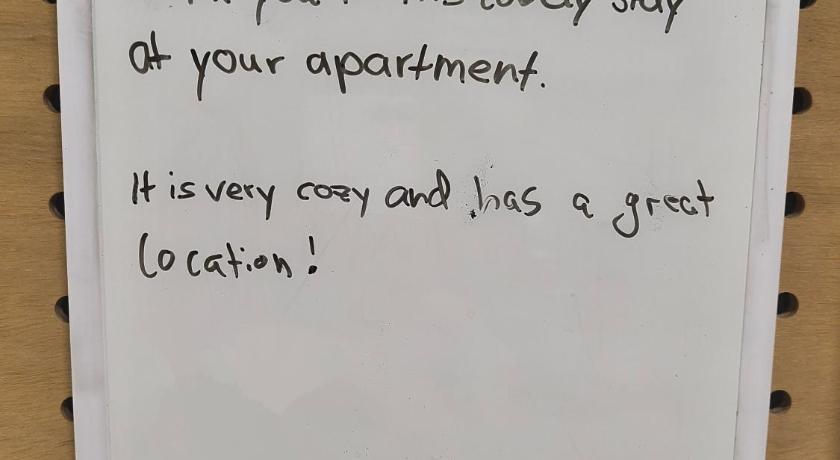 stay
at your apartment.
It is very cozy and has a great
location!